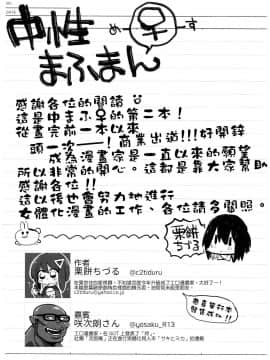 中性
め♀す
まふまん
感謝各位的閱讀
這是中まふ♀的第二本!
從畫完前一本以來
頭一次——!商業出道!!!好開鋅
成為漫畫家是一直以來的願望
所以非常的感慨。這都是靠大家幫助
感謝各位!!
這以後也會努力地進行
女體化漫畫的工作、各位請多關照。
栗餅
ちづる
作者
栗餅ちづる @c2tiduru
c2tiduru@yahoo.co.jp
嘉賓
咲次朗さん @yosaku_R13